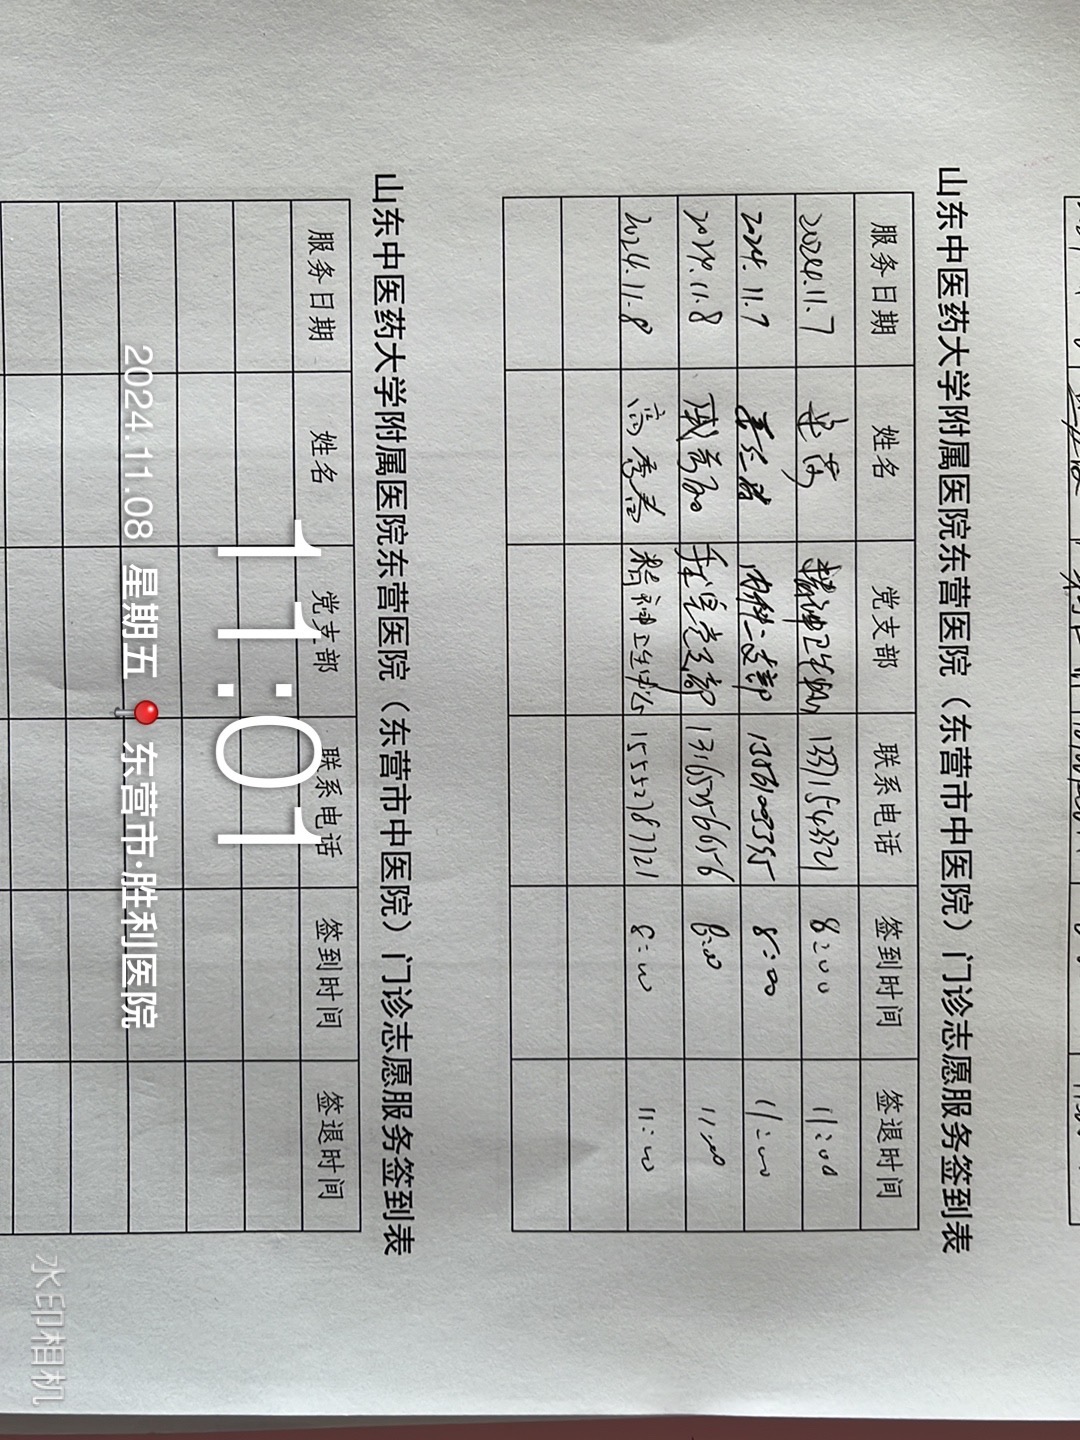 山东中医药大学附属医院东营医院（东营市中医院）门诊志愿服务签到表
服务日期 姓名 党支部 联系电话 签到时间 签退时间
2024.11.7 精神卫生 13371543321 8:00 11:00
2024.11.7 内科二支部 8:00 11:00
2024.11.8 党支部 13165256656 8:00 11:00
2024.11.8 高秀春 精神卫生中心 15552787721 8:00 11:00
山东中医药大学附属医院东营医院（东营市中医院）门诊志愿服务签到表
服务日期 姓名 党支部 联系电话 签到时间 签退时间
11:01
2024.11.08 星期五 东营市·胜利医院
水印相机